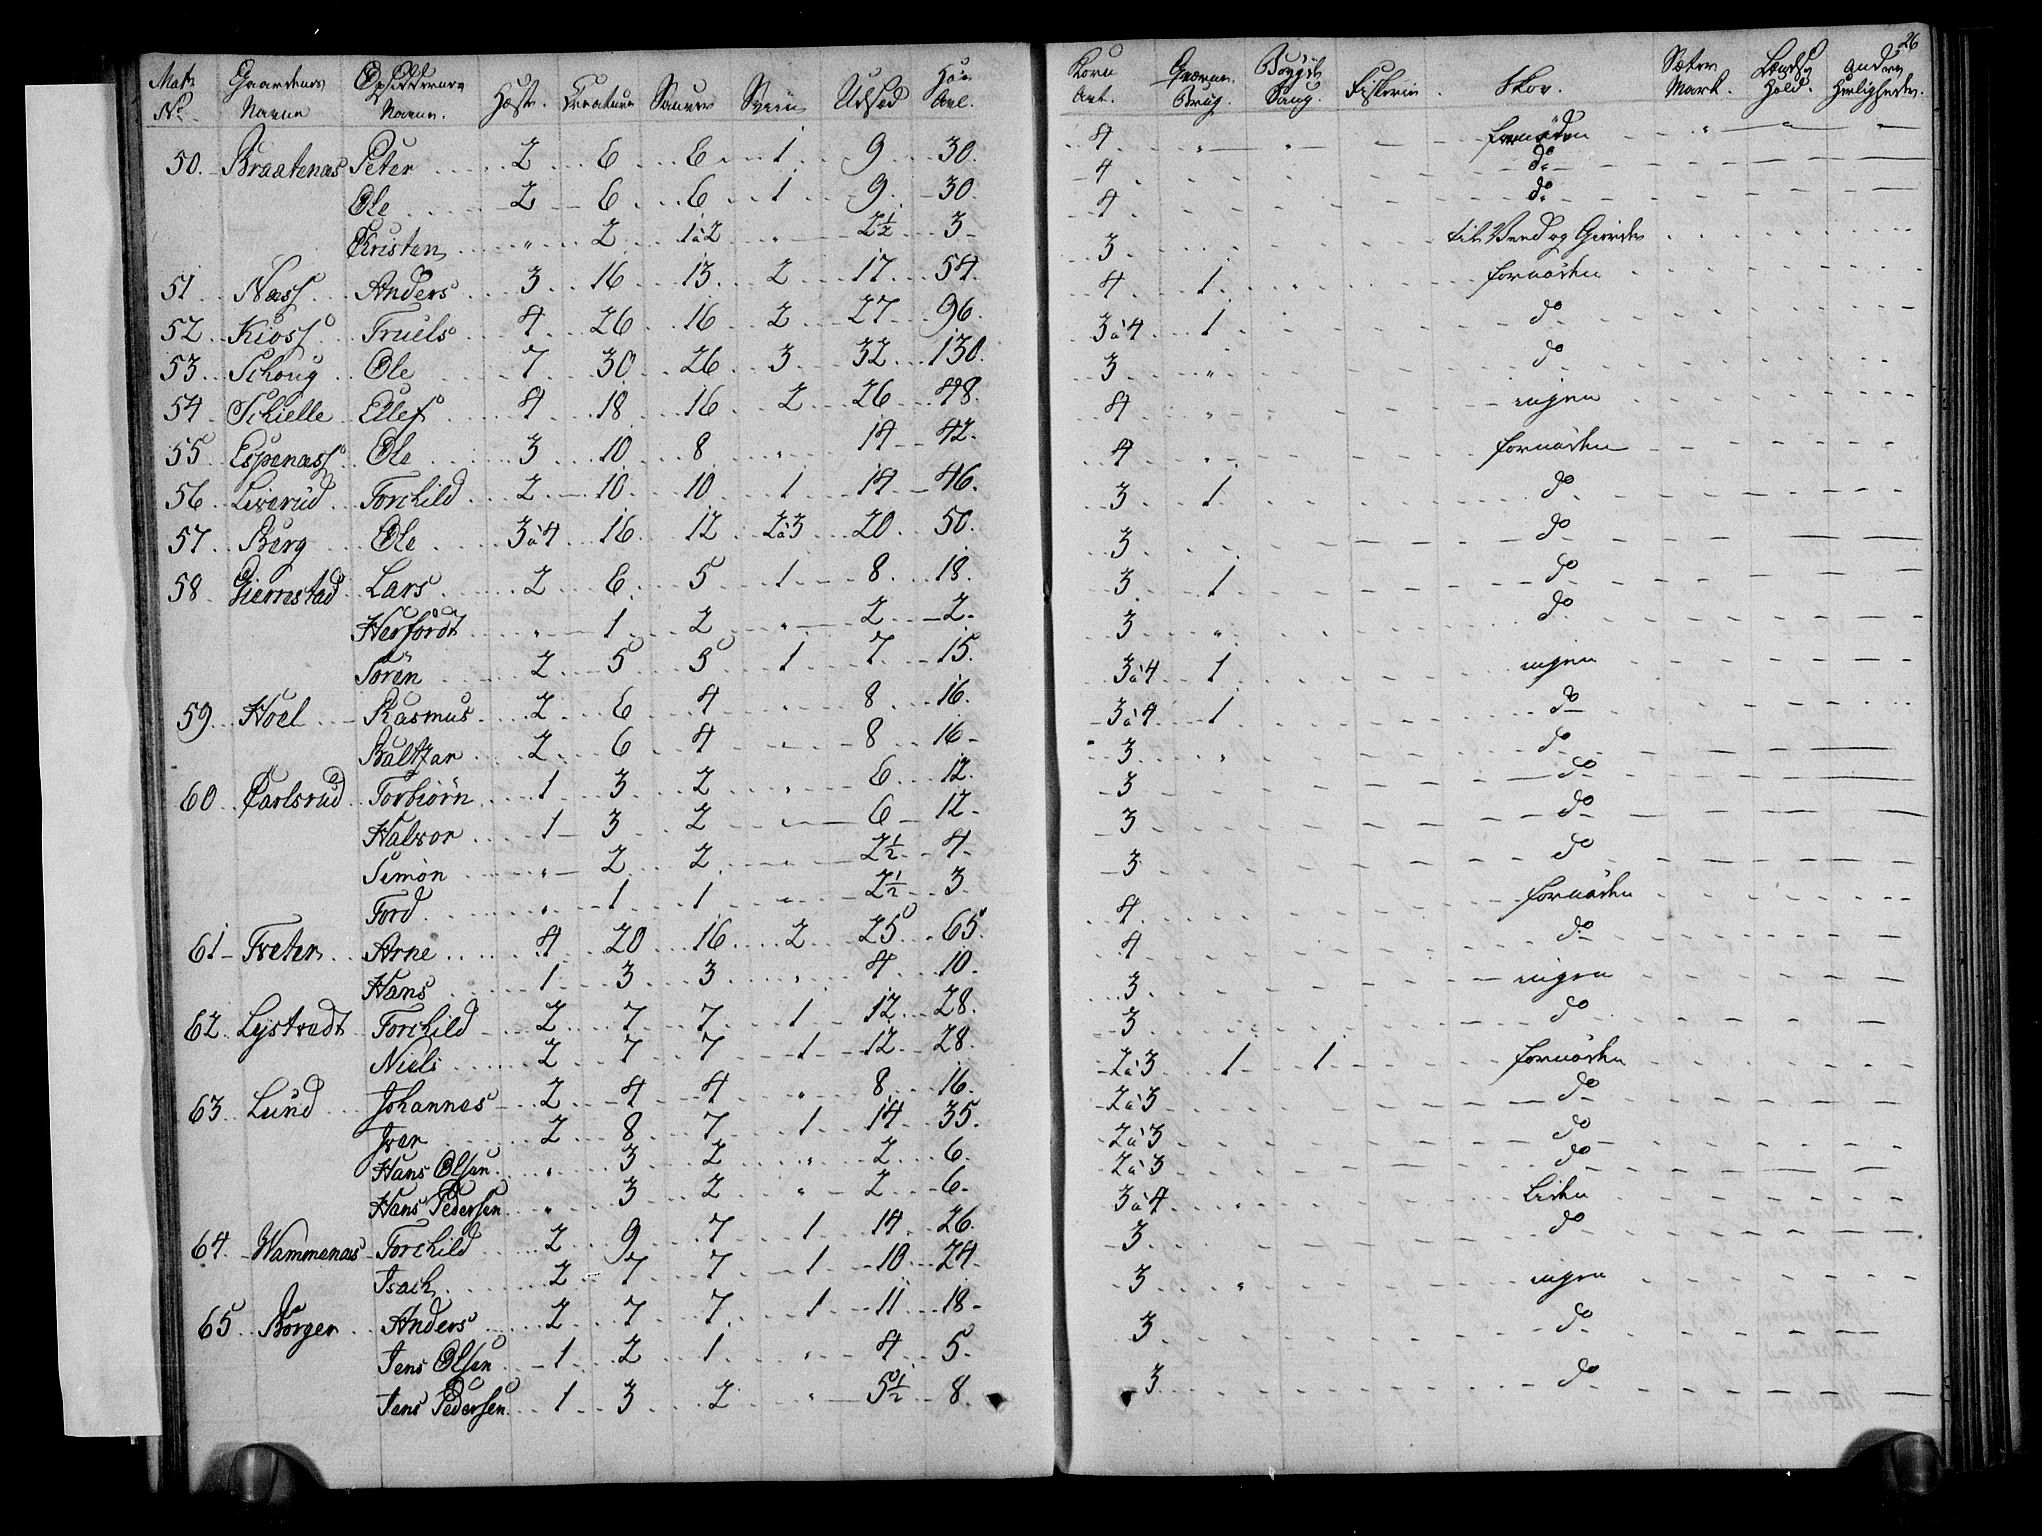 26
Mat: No. Gaardenes Navne Opsiddernes Navne. Heste. Creature Sauer Sviin Udsæd Høe Avl.
50. Braatenæs Peter 2 6 6 1 9 30.
Ole 2 6 6 1 9. 30
Kristen " 2 1 à 2 " 2½ 3
51 Næss Anders 3 16 13 2 17 54.
52 Kioss Truels 4 26 16 2 27 96.
53 Schoug Ole 7 30 26 3 32 130.
54 Schielle Ellef 4 18 16 2 26 48.
55 Espenæss Ole 3 10 8 " 14 42.
56 Liverud Torchild 2 10 10 1 14 46.
57 Berg Ole 3 à 4 16 12 2 à 3 20 50.
58 Giernestad Lars 2 6 5 1 8 18.
Herfordt " 1 2 " 2 2
Søren 2 5 5 1 7 15.
59 Hoel Rasmus 2 6 4 " 8 16.
Baltzar 2 6 4 " 8 16
60 Carlsrud Torbiørn 1 3 2 " 6 12.
Halvor 1 3 2 " 6 12
Simon " 2 2 " 2½ 4
Tord " 1 1 " 2½ 3
61 Tveter Arne 4 20 16 2 25 65.
Hans 1 3 3 " 4 10.
62 Lystradt Torchild 2 7 7 1 12 28.
Niels 2 7 7 1 12 28.
63 Lund Johannes 2 4 4 " 8 16.
Iver 2 8 7 1 14 35.
Hans Olsen " 3 2 " 2 6.
Hans Pedersen " 3 2 " 2 6
64 Wammenæs Torchild 2 9 7 1 14 26.
Isach 2 7 7 1 10 24
65 Borger Anders 2 7 7 1 11 18
Jens Olsen 1 2 1 " 4 5
Jens Pedersen 1 3 2 " 5½ 8.
Korn Avl. Qværne Brug. Boygde Saug. Fiskerie. Skov. Sæter Mark. Hold. Andre Herligheder.
4 " " fornöden " "
4 do
4 do
3 til Weed og Gierder
4 1 fornöden
3 à 4 1 do
3 " do
4 " ingen
4 " fornöden
3 1 do
3 do
3 1 do
3 " do
3 à 4 1 ingen
3 à 4 1 do
3 " do
3 do
3 do
3 do
4 fornöden
4 do
3 ingen
3 do
2 à 3 1 1 fornöden
2 à 3 do
2 à 3 do
2 à 3 do
3 à 4 " Liden
3 do
3 " ingen
3 do
3 do